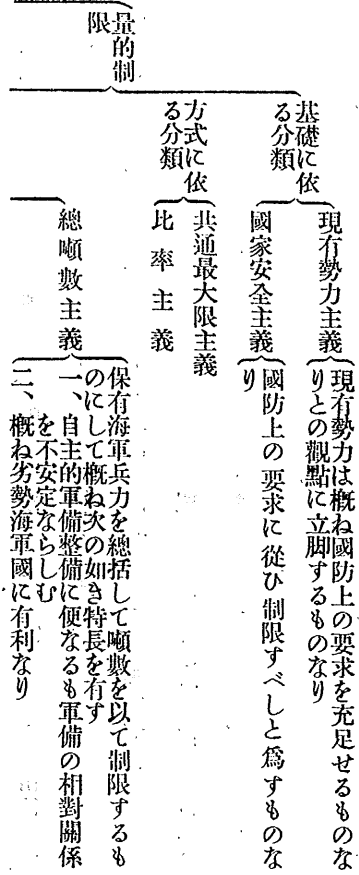 量的制
限
基礎に依
る分類
現有勢力主義
現有勢力は概ね國防上の要求を充足せるものな
りとの觀點に立脚するものなり
國家安全主義
國防上の要求に從ひ制限すべしと爲すものな
り
方式に依
る分類
共通最大限主義
比率主義
總噸數主義
保有海軍兵力を總括して噸數を以て制限するも
のにして概ね次の如き特長を有す
一、自主的軍備整備に便なるも軍備の相對關係
を不安定ならしむ
二、概ね劣勢海軍國に有利なり